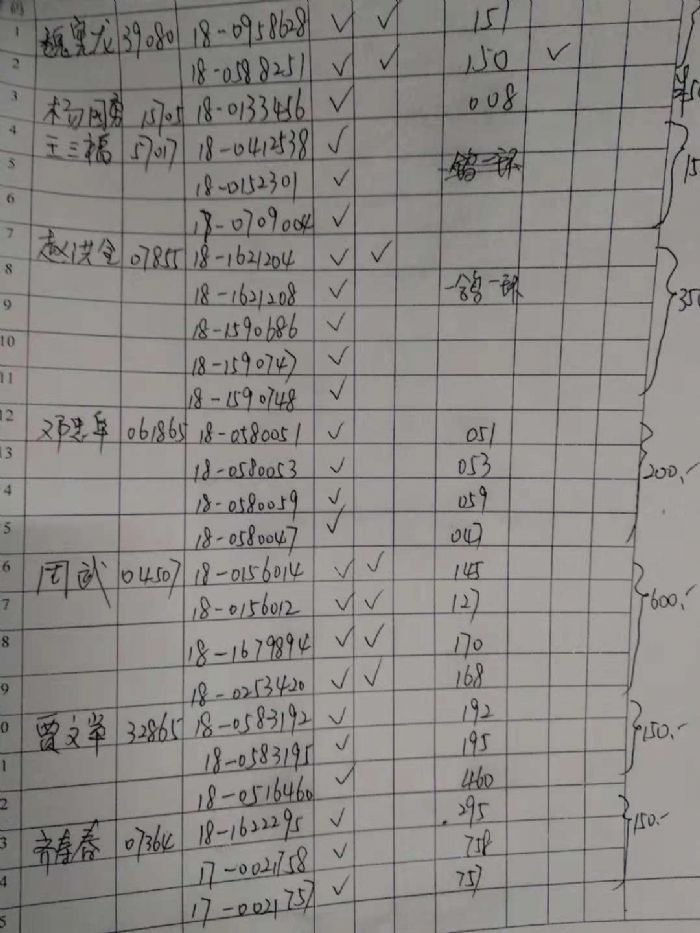 1 39080 18-0958628 ✓ ✓ 151
2 18-0588251 ✓ ✓ 150 ✓
3 15705 18-0133456 ✓ 008
4 王三福 57017 18-0412538 ✓
5 18-0152301 ✓
6 18-0709004 ✓
7 赵洪全 07855 18-1621204 ✓ ✓
8 18-1621208 ✓
9 18-1590686 ✓
10 18-1590747 ✓
11 18-1590748 ✓
12 邓忠阜 061865 18-0580051 ✓ 051
3 18-0580053 ✓ 053 200.-
4 18-0580059 ✓ 059
5 18-0580047 ✓ 047
6 周武 04507 18-0156014 ✓ ✓ 145
7 18-0156012 ✓ ✓ 127 600.-
8 18-1679894 ✓ ✓ 170
9 18-0253420 ✓ ✓ 168
0 贾文举 32865 18-0583192 ✓ 192
1 18-0583195 ✓ 195 150.-
2 18-0516460 ✓ 460
3 07364 18-1622295 ✓ .295
4 17-0021758 ✓ 758 150.-
5 17-0021757 ✓ 757